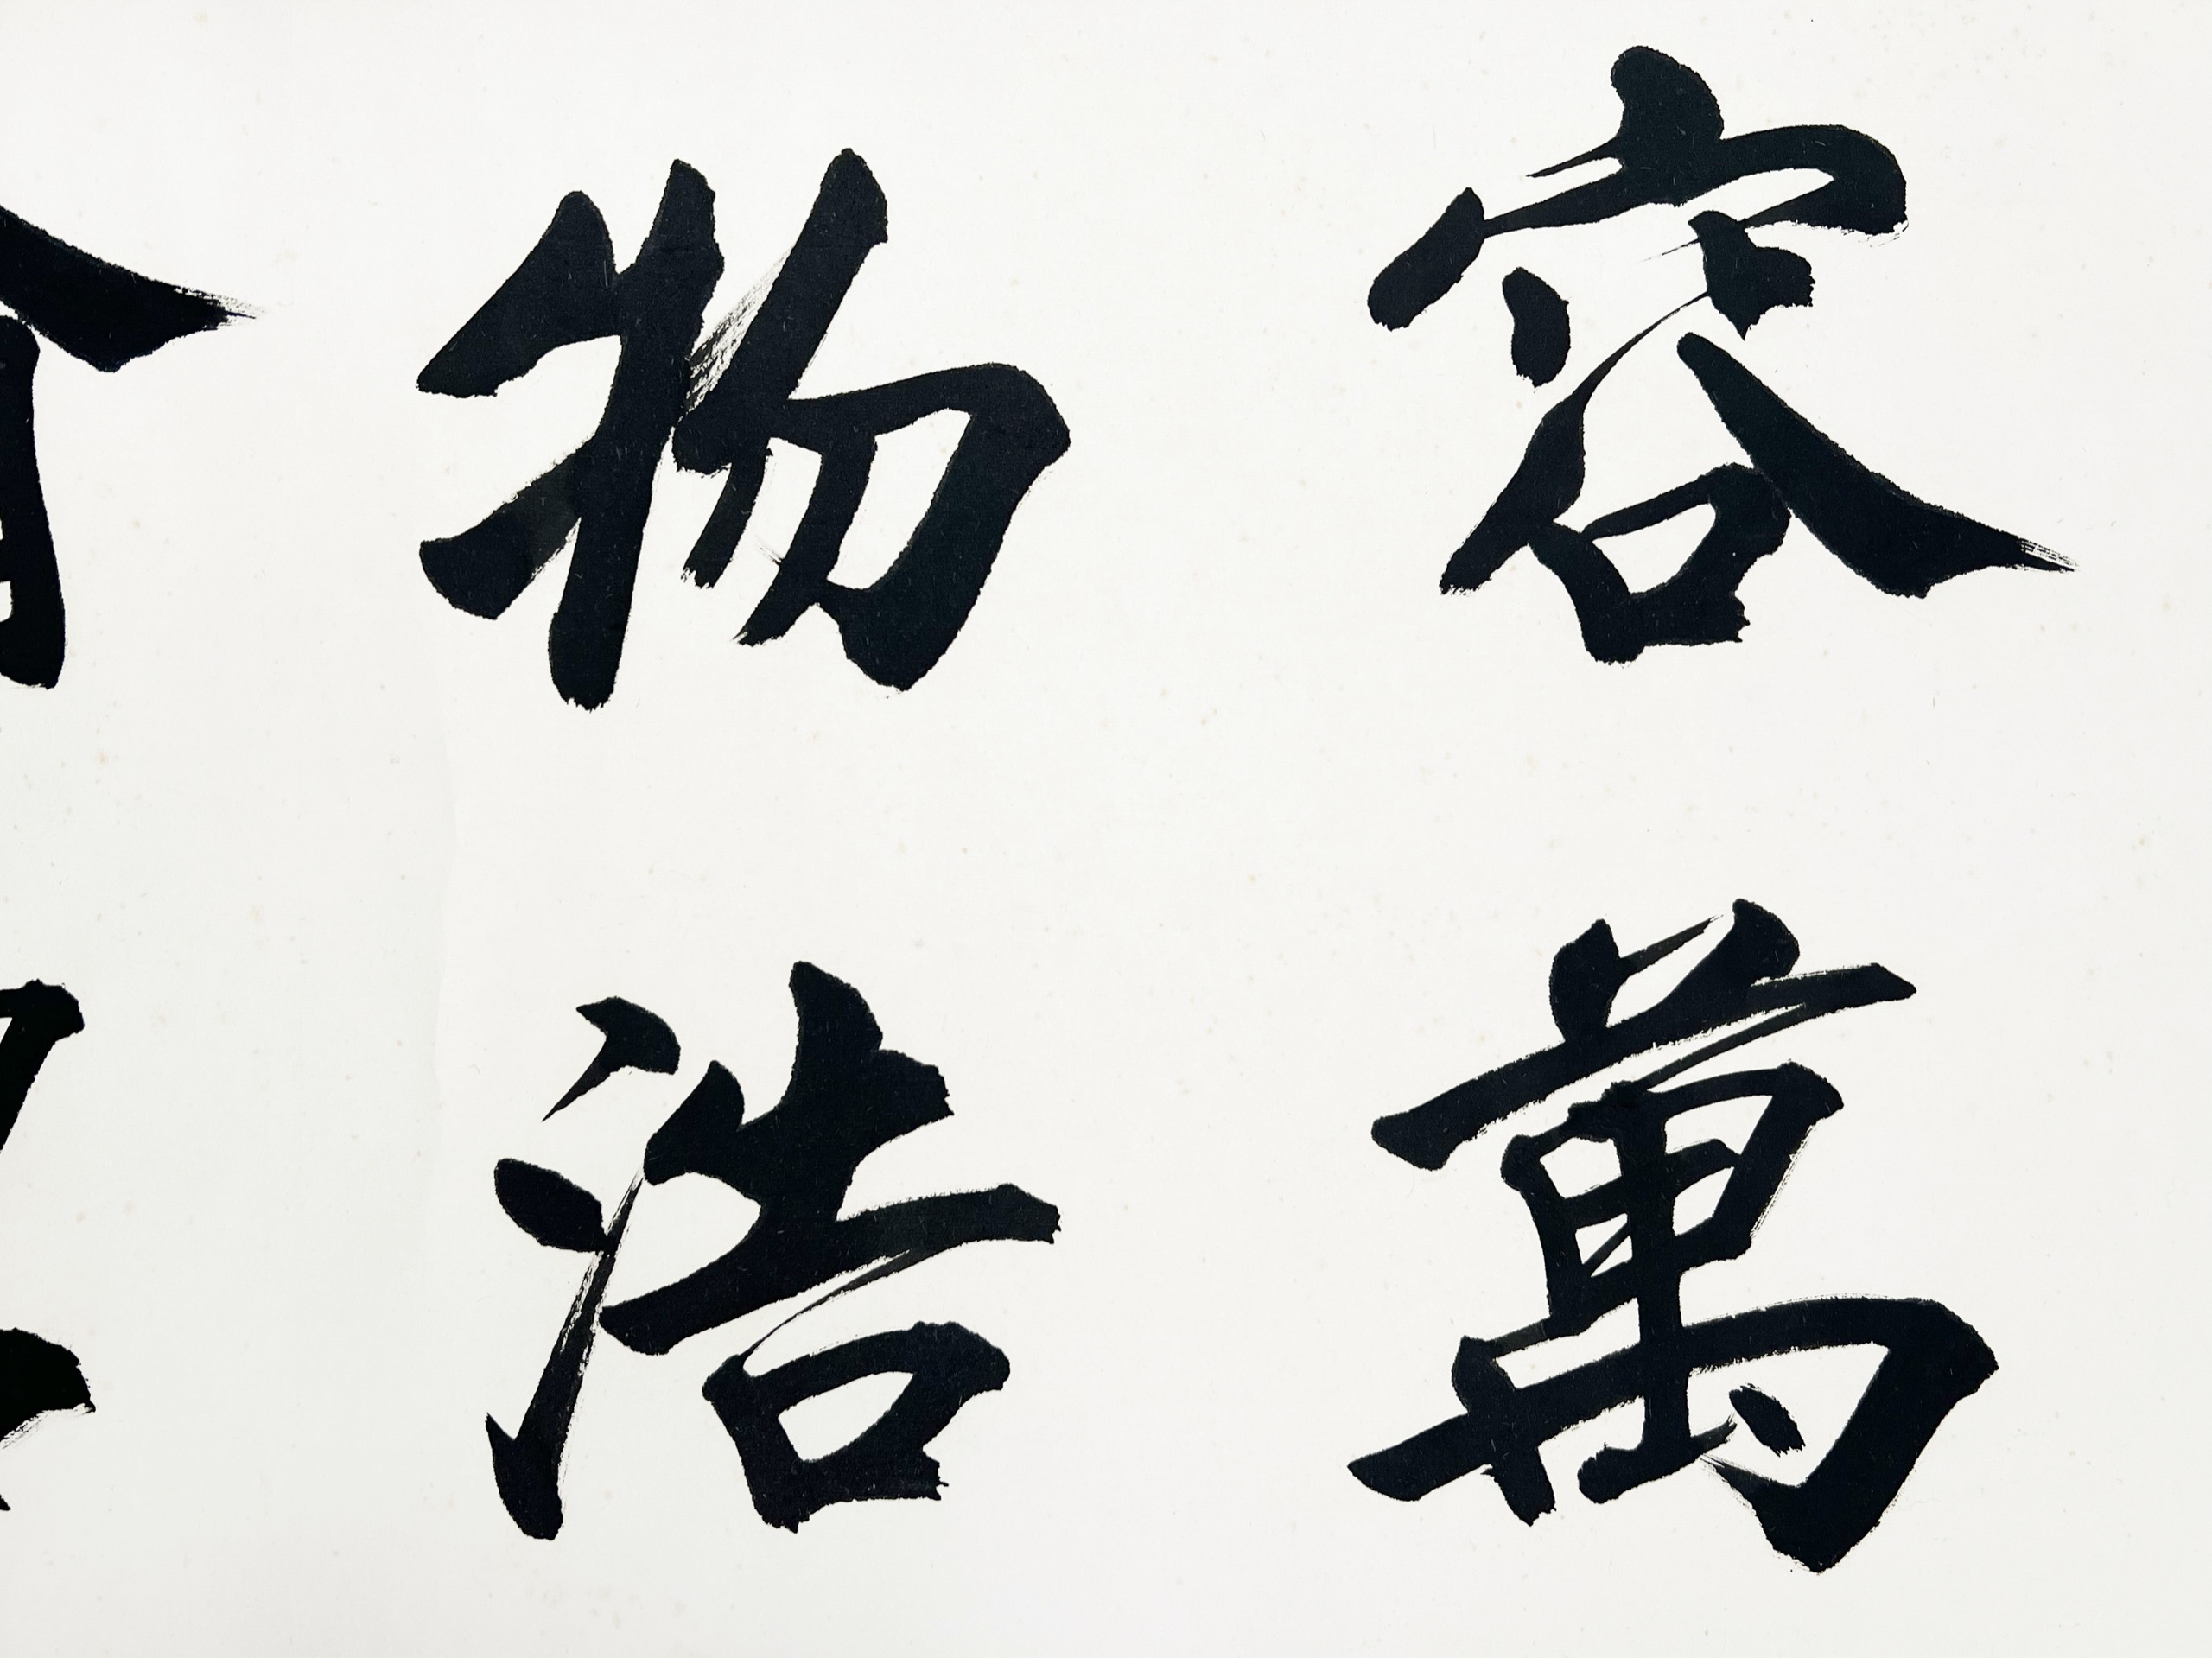 容萬
物浩